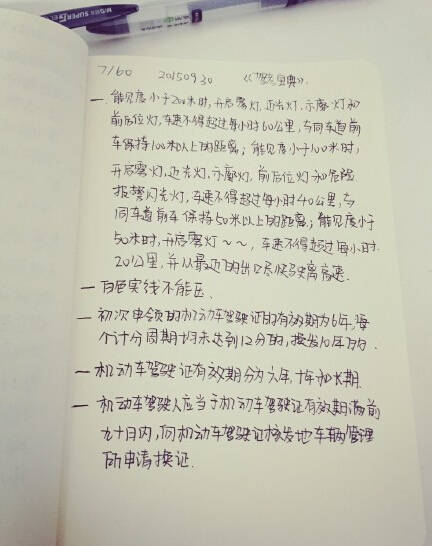 M&G SUPER
7/60 20150930 《驾考宝典》.
一. 能见度小于200米时,开启雾灯,近光灯,示廓灯和
前后位灯,车速不得超过每小时60公里,与同车道前
车保持100米以上的距离;能见度小于100米时,
开启雾灯,近光灯,示廓灯,前后位灯和危险
报警闪光灯,车速不得超过每小时40公里,与
同车道前车保持50米以上的距离;能见度小于
50米时,开启雾灯~~,车速不得超过每小时
20公里,并从最近的出口尽快驶离高速.
一 白色实线不能压.
一 初次申领的机动车驾驶证的有效期为6年,每
个计分周期均未达到12分的,换发10年的.
一 机动车驾驶证有效期分为六年,十年和长期.
一 机动车驾驶人应当于机动车驾驶证有效期满前
九十日内,向机动车驾驶证核发地车辆管理
所申请换证.